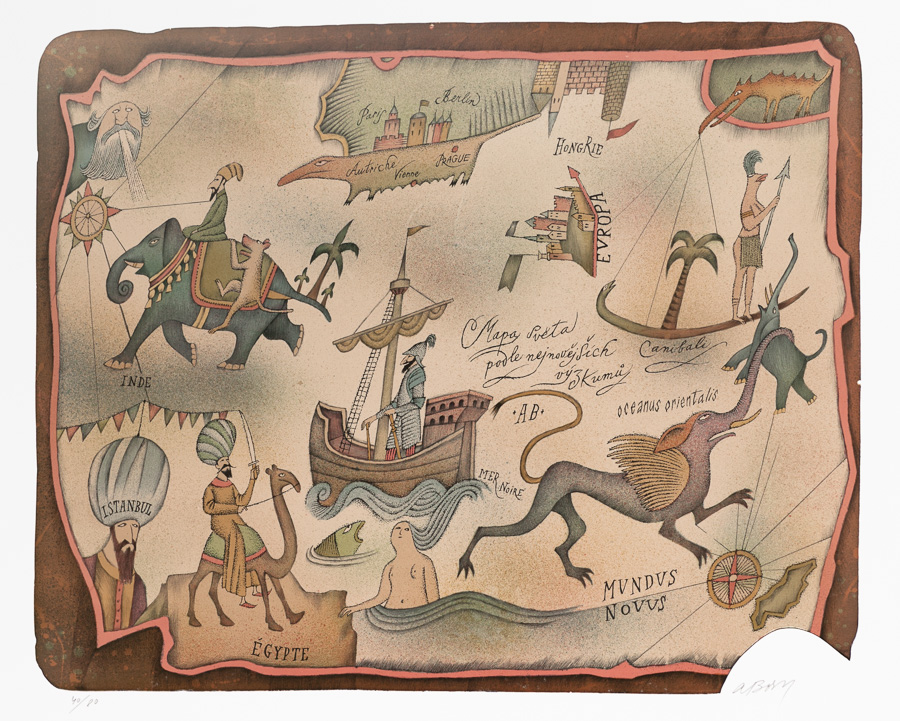 Paris
Berlin
Autriche
Vienne
PRAGUE
HONGRIE
EVROPA
INDE
Mapa světa
podle nejnovějších
výzkumů
·AB·
Canibali
oceanus orientalis
ISTANBUL
MER
NOIRE
MUNDUS
NOVUS
ÉGYPTE
A BORN